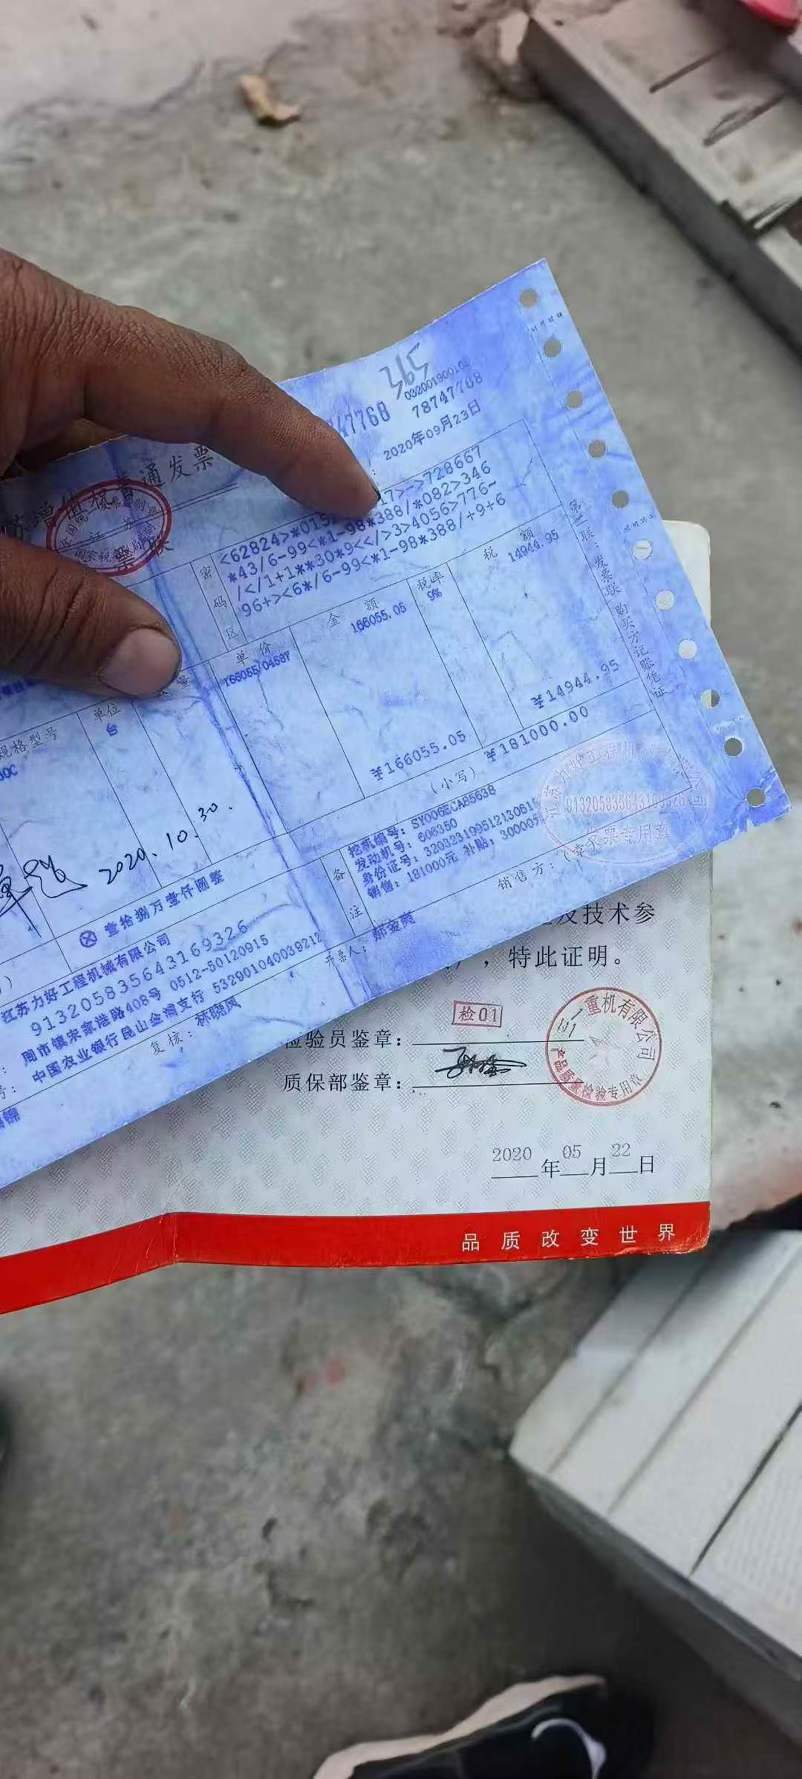 032001900104
47768
78747768
2020年09月23日
增值税普通发票
票联
密码区
<62824>*015
17>->728667
*43/6-99<*1-98*388/*082>346
/</1+1**30*9<</>3>4056>776-
96+><6*/6-99<*1-98*388/+9+6
第二联：发票联 购买方记账凭证
规格型号
单位
单价
金额
税率
税额
台
166055.05
9%
14944.95
¥166055.05
¥14944.95
2020.10.30.
⊗ 壹拾捌万壹仟圆整
(小写) ¥181000.00
江苏力好工程机械有限公司
913205835643169326
周市镇宋家港路408号 0512-50120915
中国农业银行昆山金浦支行 532901040039212
备注
挖机编号: SY006ECA85638
发动机号: 606350
身份证号:
销售: 181000元 补贴:
复核: 林晓凤
开票人:
销售方:
发票专用章
及技术参
，特此证明。
检01
检验员鉴章:
质保部鉴章:
重机有限公司
产品质量检验专用章
2020年05月22日
品质改变世界